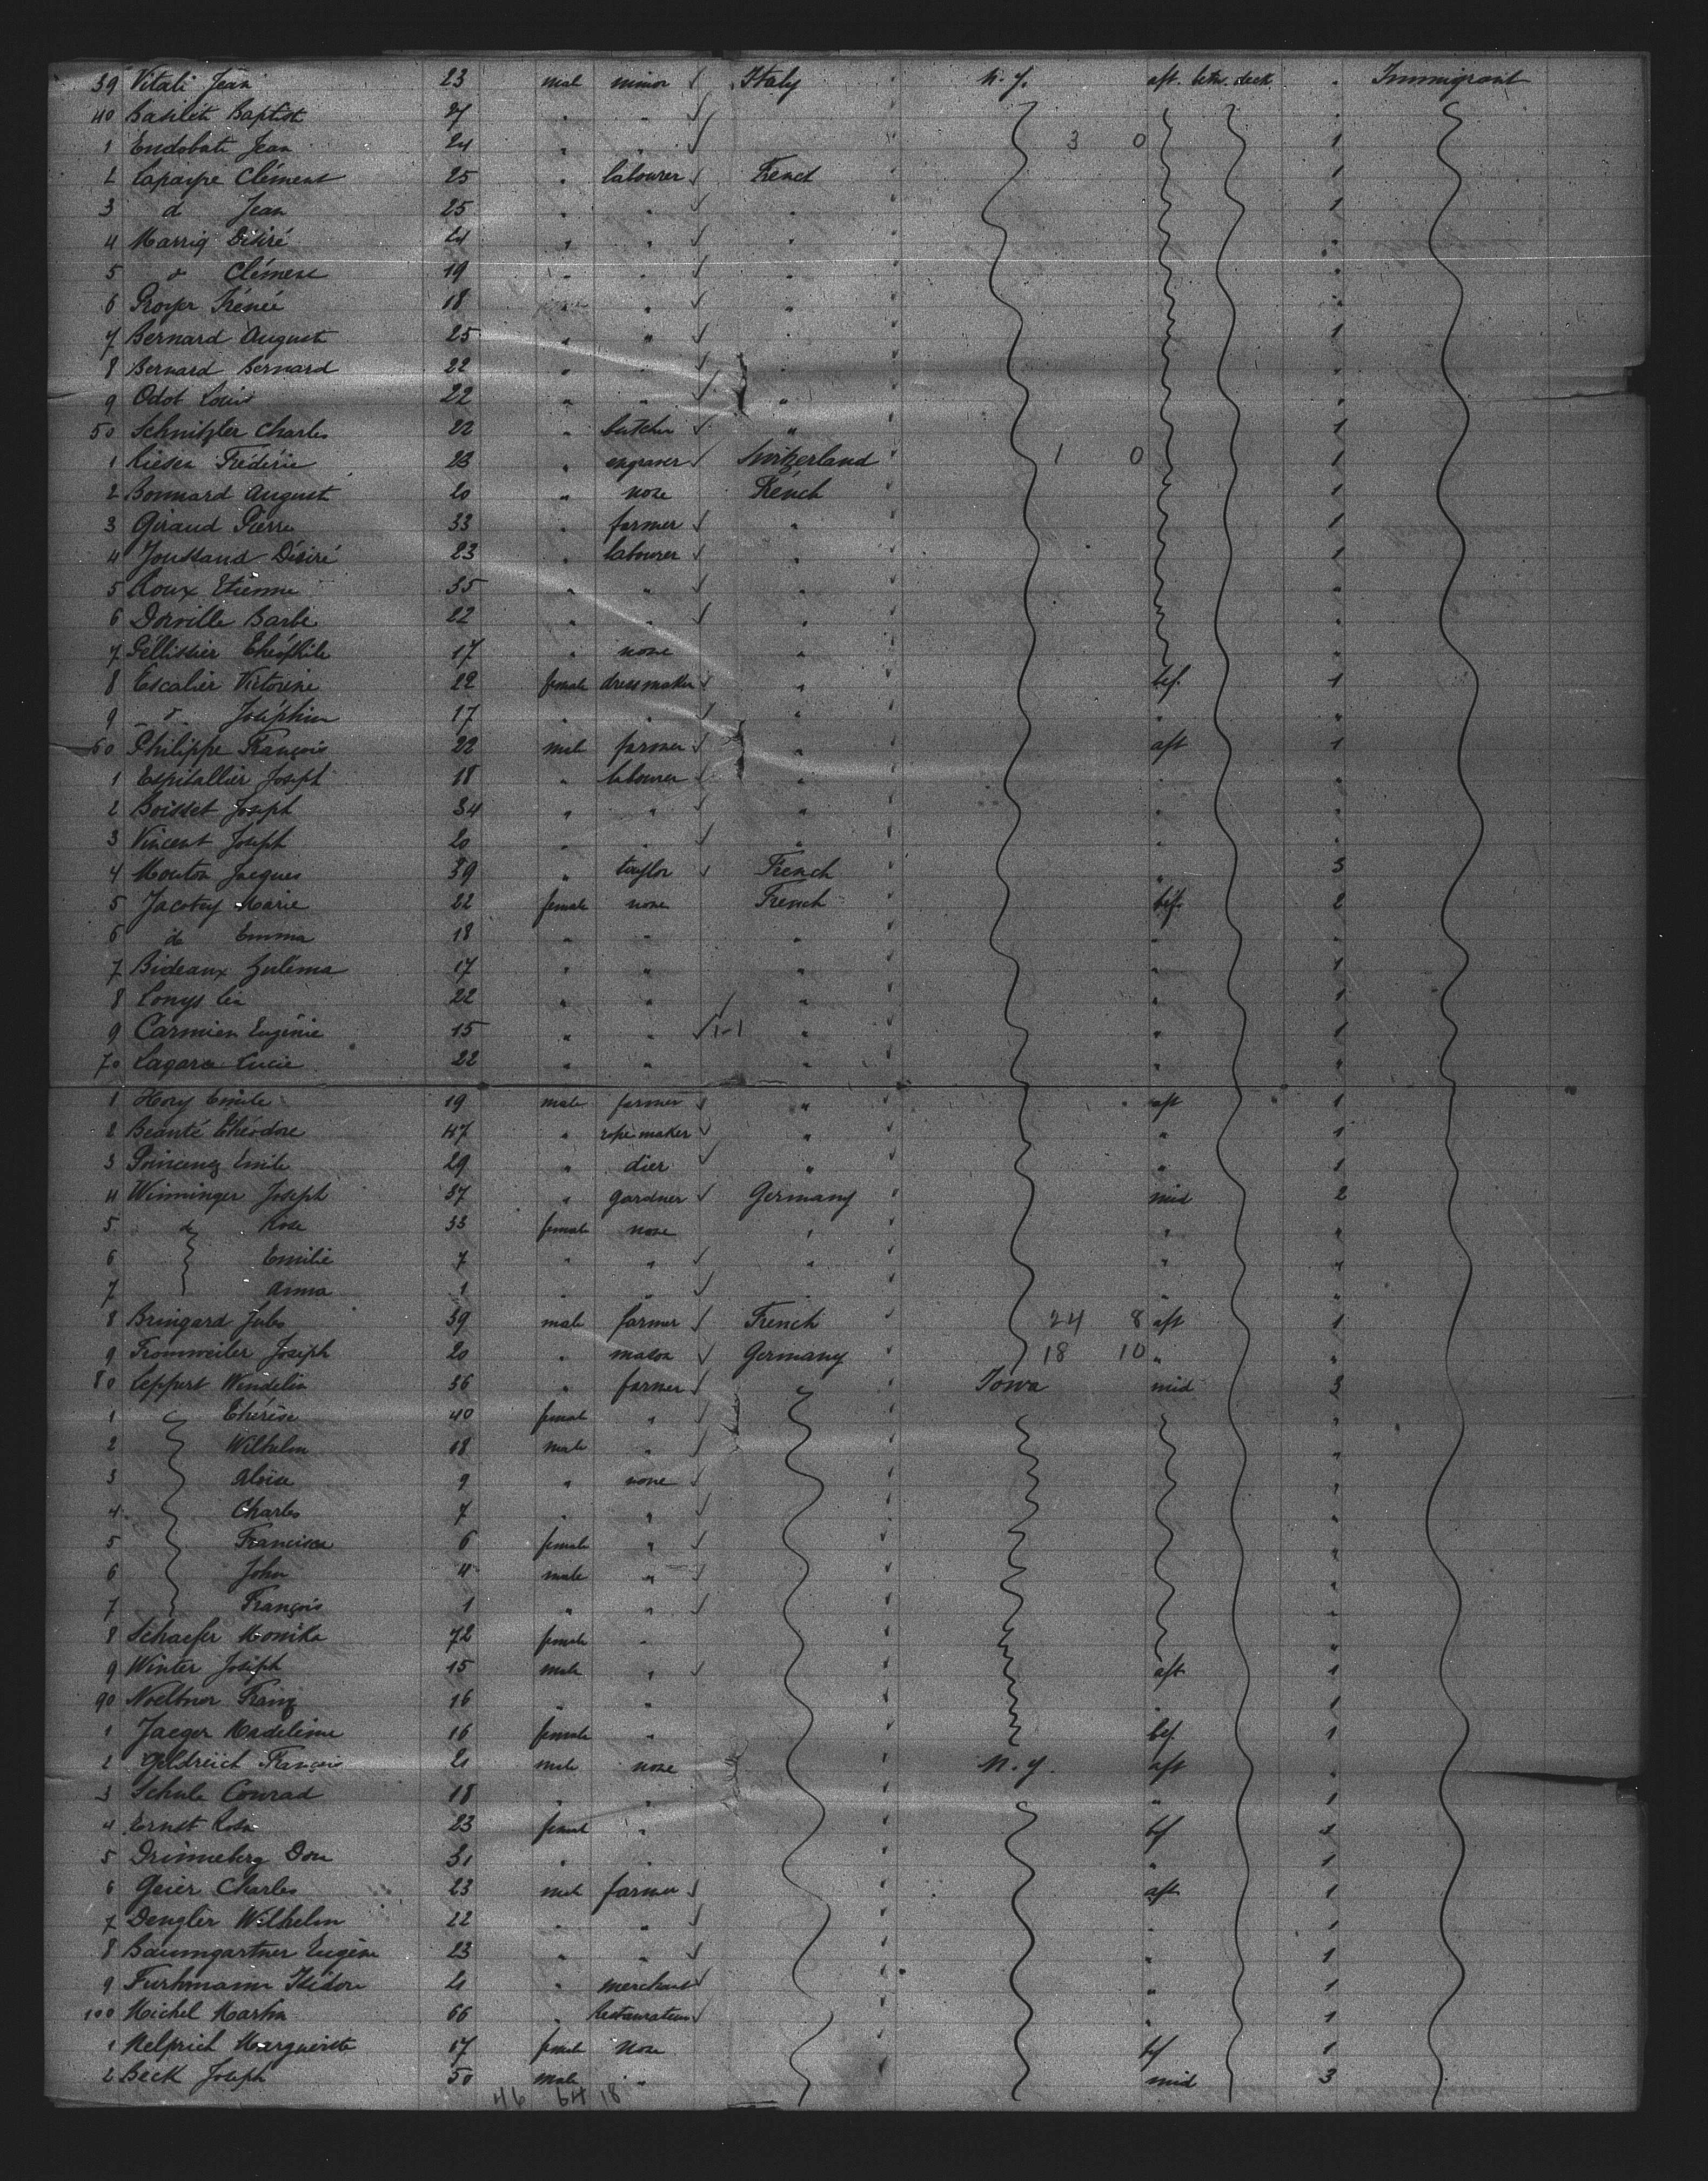 39 Vitali Jean 23 mal minor ✓ Italy N.Y. aft. betw. deck " Immigrant
40 Basilèti Baptist " " ✓ "
1 Endobati Jean 24 " " ✓ 3 0 1
2 Clément 25 " labourer ✓ French 1
3 d Jean 25 " " ✓ " 1
4 Marriq Désiré " " ✓ " "
5 d Clémen 19 " " ✓ " "
6 Prosper Irénée 18 " ✓ " "
7 Bernard August 25 " " ✓ " 1
8 Bernard Bernard 22 " " ✓ " "
9 Odot Louis 22 " " ✓ " 1
50 Schnitzler Charles 22 " butcher ✓ " 1
1 Riesen Fréderic 23 " engraver ✓ Switzerland 1 0 1
2 Bonnard August 20 " none French 1
3 Giraud Pierre 33 " farmer ✓ " 1
4 Joussaud Désiré 23 " labourer ✓ " 1
5 Roux Etienne 35 " " ✓ " "
6 Dorville Barbe 22 " " ✓ " "
7 Péllissier Théophile 17 " none " "
8 Escalier Victorine 22 female dressmaker ✓ " bef. 1
9 d Joséphine 17 " " ✓ " " "
60 Philippe François 22 male farmer ✓ " aft 1
1 Espitallier Joseph 18 " labourer ✓ " " "
2 Boisset Joseph 34 " " ✓ " " "
3 Vincent Joseph 20 " " ✓ " " "
4 Mouton Jacques 39 " taylor ✓ French " 3
5 Jacotey Marie 22 female none French bef. 2
6 do Emma 18 " " " " "
7 Bideaux Zuléma 17 " " " " 1
8 Lonys 22 " " ✓ " " 1
9 Carmien Eugénie 15 " " ✓ 1-1 " " 1
70 Lagare Lucie 22 " " " " "
1 Hory Emile 19 male farmer ✓ " aft 1
2 Beanté Théodore 47 " ropemaker ✓ " " 1
3 Emile 29 " dier ✓ " " 1
4 Winninger Joseph 37 " gardner ✓ Germany mid 2
5 do Rose 33 female none " " "
6 Emilie 7 " " ✓ " " "
7 Anna 1 " " ✓ " " "
8 Bringard Jules 39 male farmer ✓ French 24 8 aft 1
9 Fromweiler Joseph 20 " mason ✓ Germany 18 10 " "
80 Leppert Wendelin 36 " farmer ✓ Iowa mid 3
1 Thérèse 40 femal " ✓ "
2 Wilhelm 18 male " ✓ "
3 Aloise 9 " none ✓ "
4 Charles 7 " " ✓ "
5 Francisca 6 female " ✓ "
6 John 4 male " ✓ "
7 François 1 " " ✓ "
8 Schaefer Monika 72 female " "
9 Winter Joseph 15 male " ✓ aft 1
90 Noeltner Franz 16 " " " 1
1 Jaeger Madeleine 16 female " bef. 1
2 Geldreich François 21 male none N.Y. aft "
3 Schule Conrad 18 " " " 1
4 Ernst Rosa 23 femal " bef 1
5 Drinneberg 31 " " " 1
6 Geier Charles 23 mal farmer ✓ aft 1
7 Dengler Wilhelm 22 " " ✓ " 1
8 Baumgartner Eugène 23 " " ✓ " 1
9 Furhmann Isidore 21 " merchant ✓ " 1
100 Michel Martin 66 " Restaurateur ✓ " 1
1 Helprich Marguerite 17 female None bef 1
2 Beck Joseph 50 male " mid 3
46 64 18